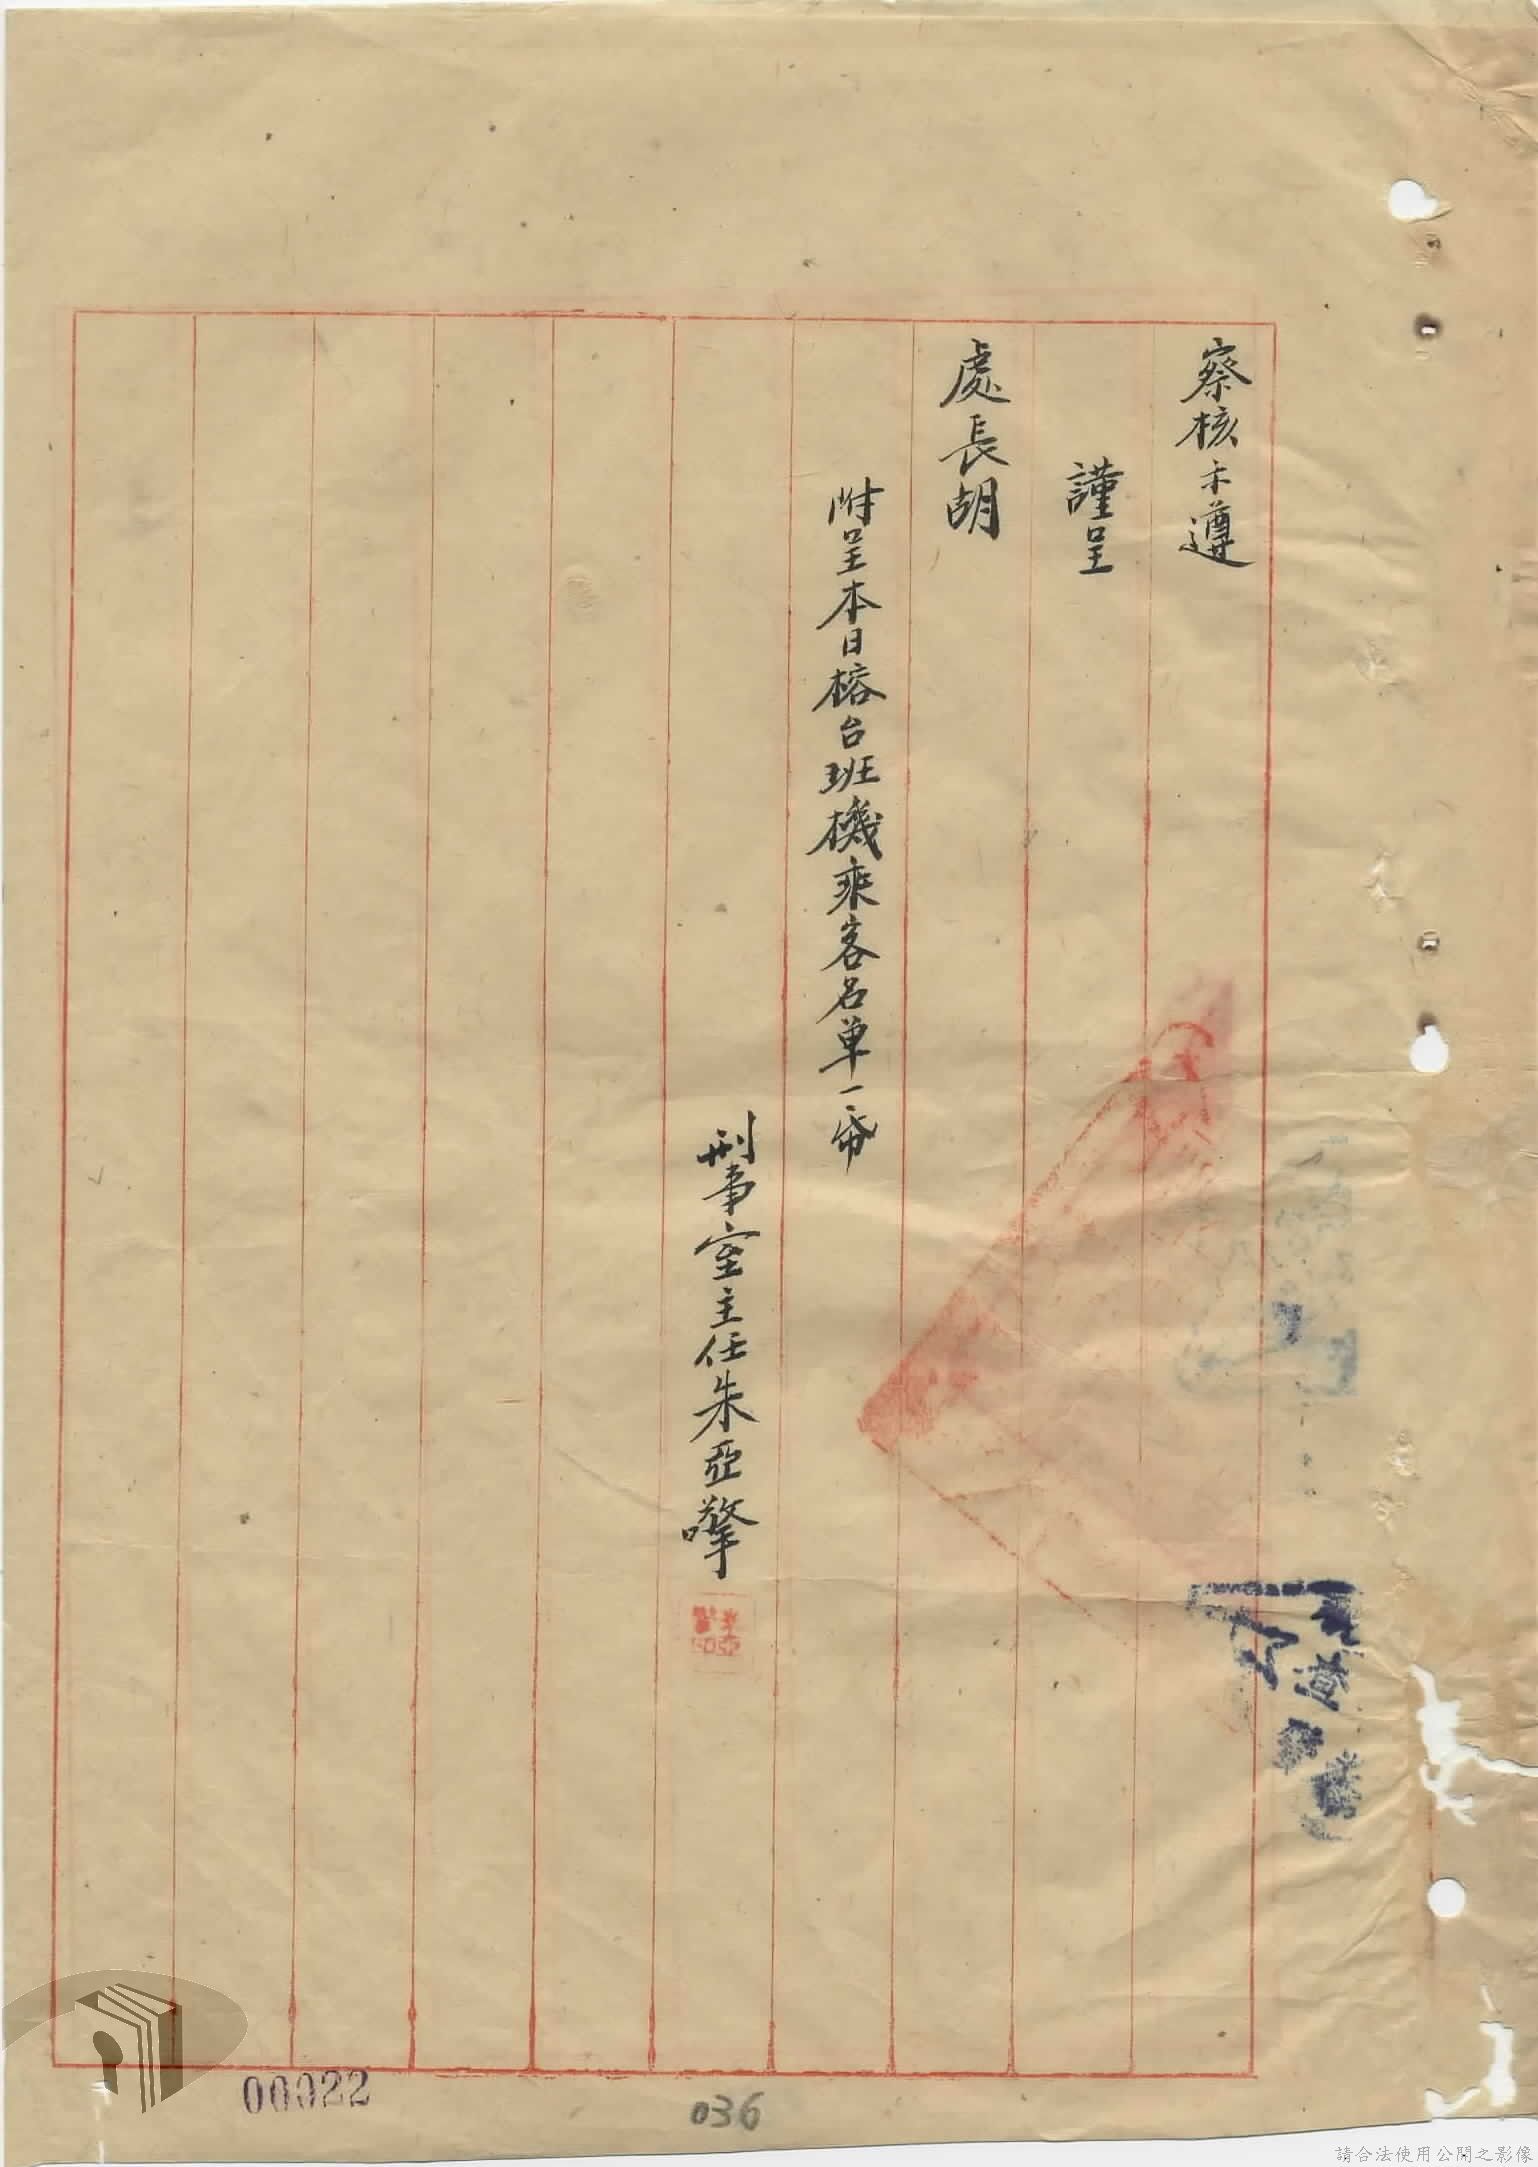 察核示遵
謹呈
處長胡
附呈本日榕台班機乘客名单一帋
刑事室主任朱亞擎
00022
036
請合法使用公開之影像